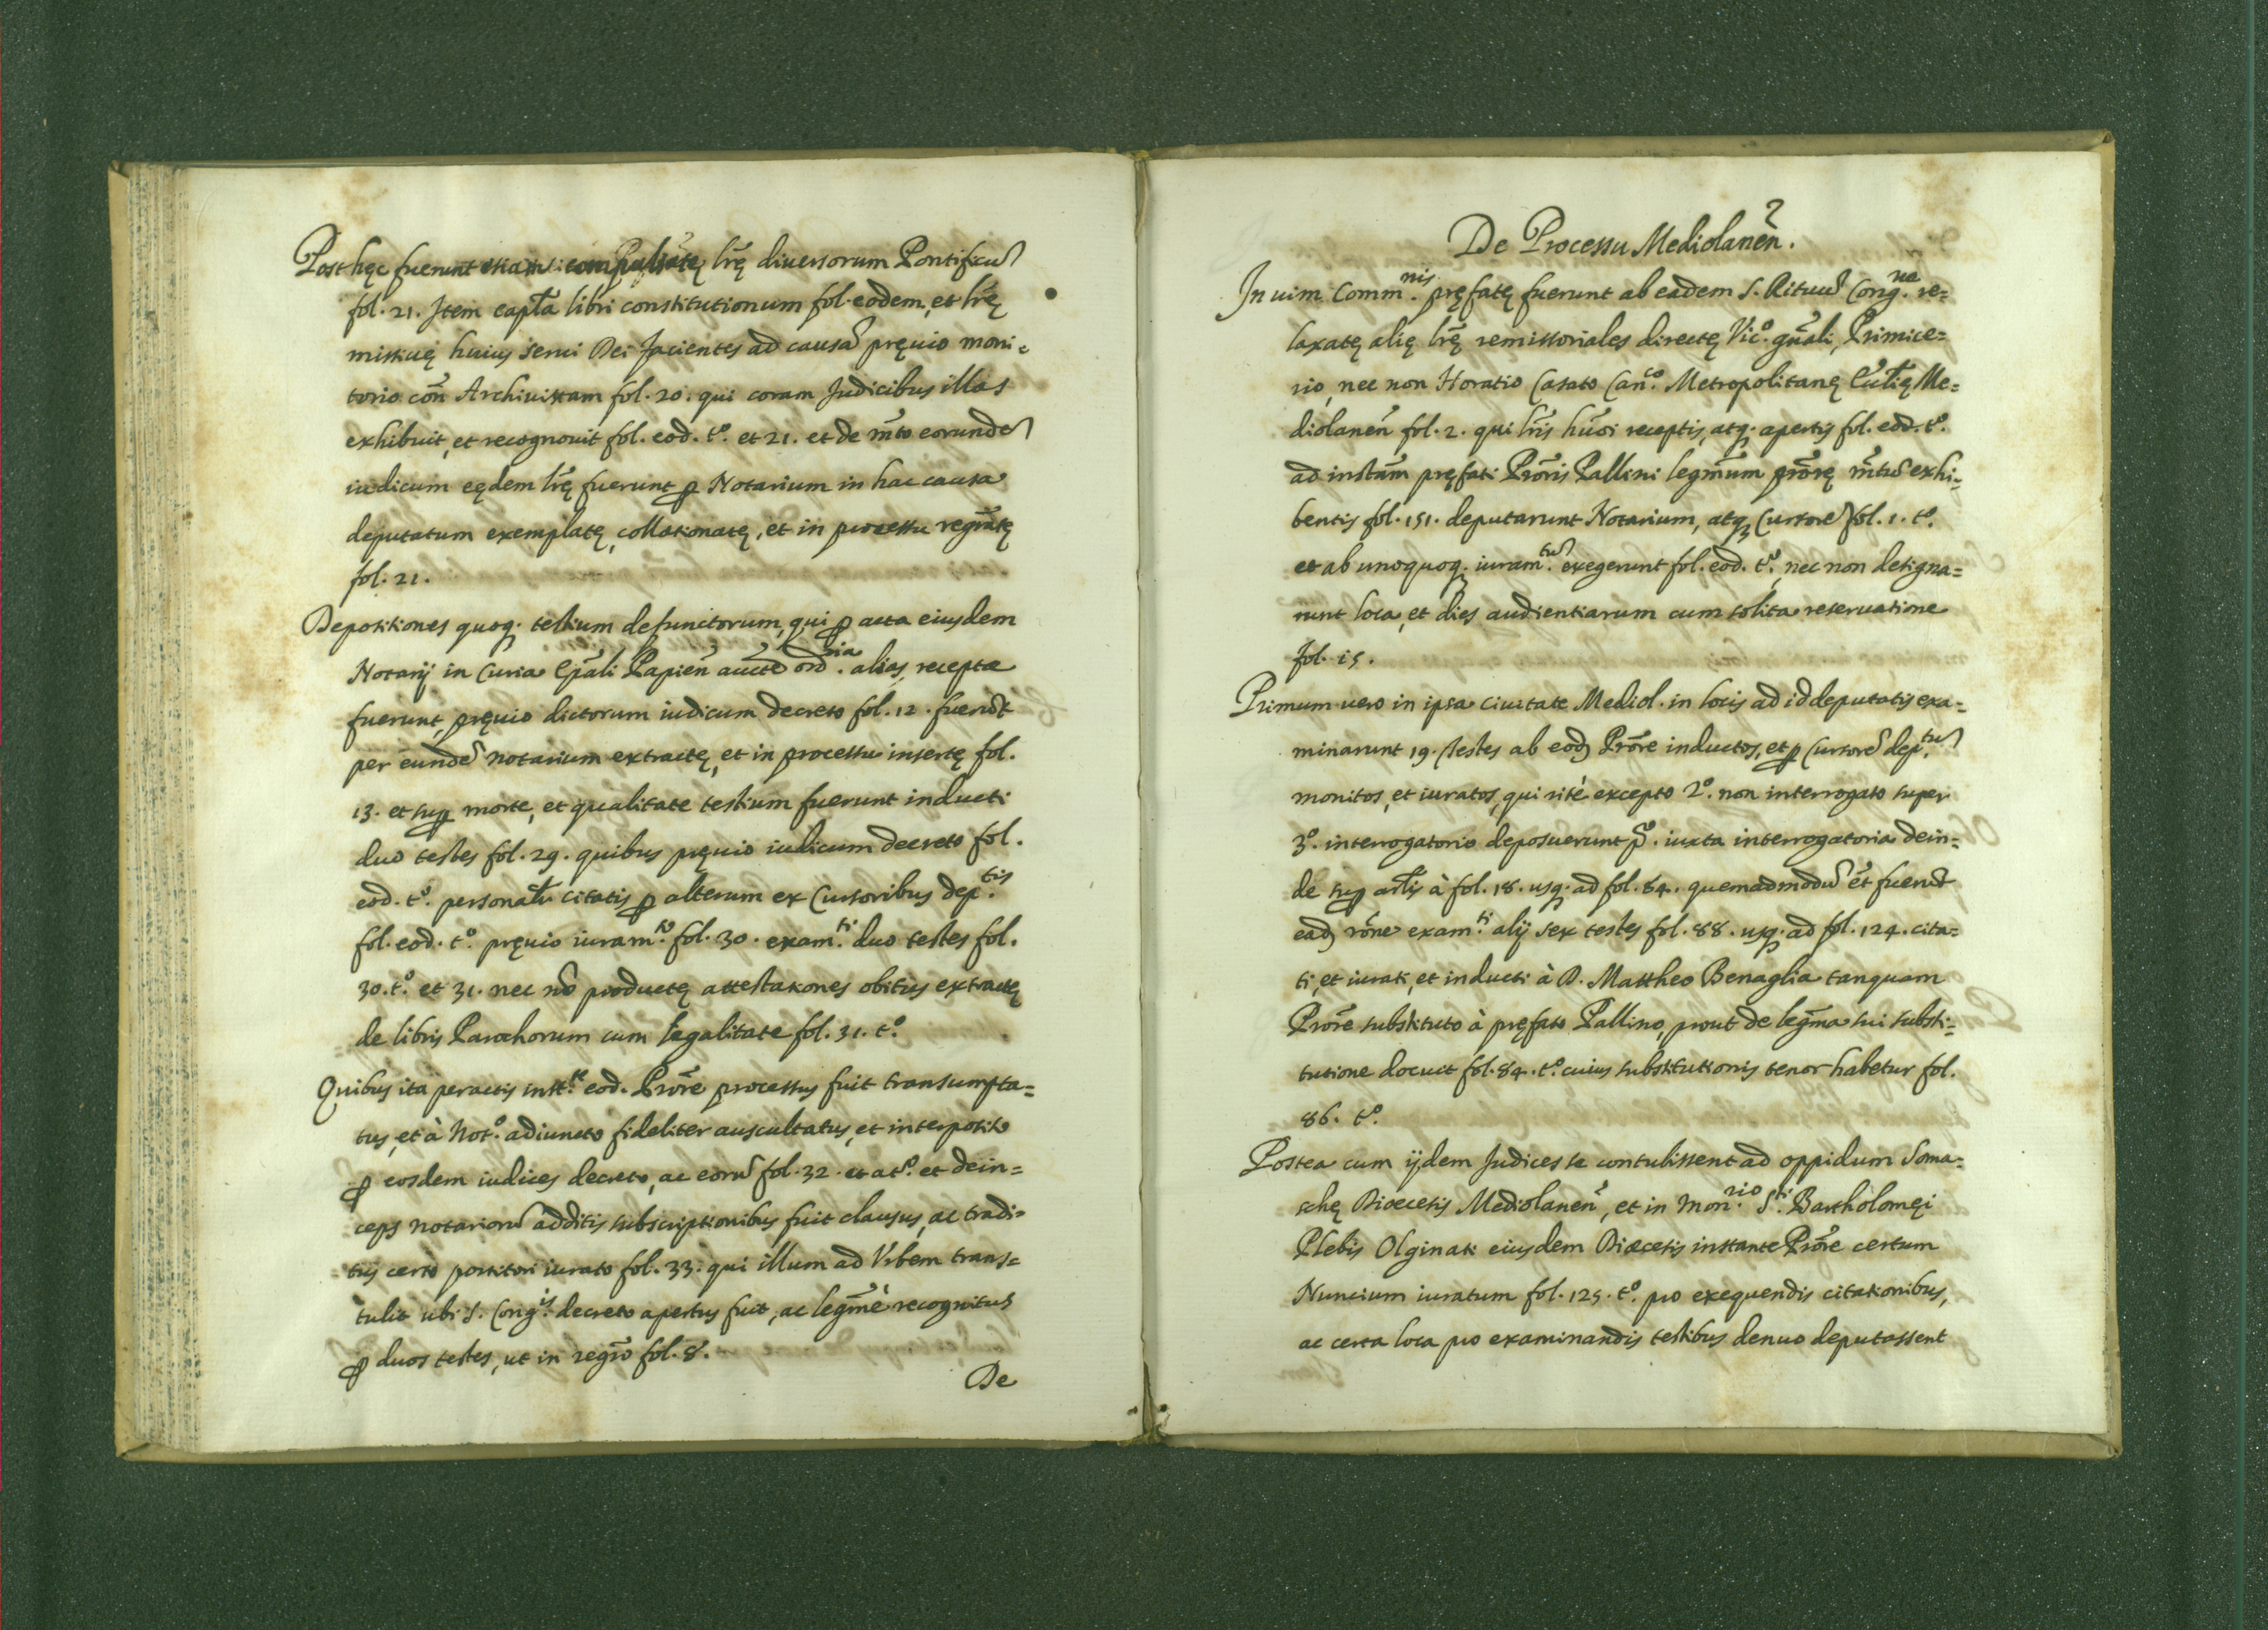 Post hęc fuerunt etiam compulsatę lr̃ę diuersorum Pontificũ
fol. 21. Item capt̃a libri constitutionum fol. eodem, et lr̃ę
missiuę huius serui Dei facientes ad causã pręuio moni=
torio coñ Archiuistam fol. 20. qui coram Judicibus illas
exhibuit, et recognouit fol. eod. tº. et 21. et de m̃to eorundẽ
iudicum eędem lr̃ę fuerunt ꝑ Notarium in hac causa
deputatum exemplatę, collationatę, et in processu regr̃atę
fol. 21.
Depositiones quoq; testium defunctorum, qui ꝑ acta eiusdem
Notarij in Curia Ep̃ali Papień auctẽ ord.ria alias receptæ
fuerunt, pręuio dictorum iudicum decreto fol. 12. fuerũt
per eundẽ notarium extractę, et in processu insertę fol.
13. et suꝑ morte, et qualitate testium fuerunt inducti
duo testes fol. 29. quibus pręuio iudicum decreto fol.
eod. tº. personalr̃ citatis ꝑ alterum ex Cursoribus dep.tis
fol. eod. tº. pręuio iuram.to fol. 30. exam.ti duo testes fol.
30. tº. et 31. nec nõ productę attestationes obitus extractę
de libris Parochorum cum legalitate fol. 31. tº.
Quibus ita peractis inst.te eod. Prõre processus fuit transumpta=
tus, et à Notº. adiuncto fideliter auscultatus, et interposito
ꝑ eosdem iudices decreto, ac eorũ fol. 32. et a tº. et dein=
ceps notariorũ additis subscriptionibus fuit clausus, ac tradi=
tus certo portitori iurato fol. 33. qui illum ad Vrbem trans=
tulit ubi S. Cong.is decreto apertus fuit, ac legm̃è recognitus
ꝑ duos testes, ut in regr̃o fol. 8.
De
De Processu Mediolanẽn.
In uim Comm.nis pręfatę fuerunt ab eadem S. Rituũ Cong.ne re=
laxatę alię lr̃ę remissoriales directę Vicº. gñali, Primice=
rio, nec non Horatio Casato Can.co Metropolitanę Ecc̃lię Me=
diolanẽn fol. 2. qui lr̃is hmõi receptis, atq; apertis fol. eod. tº.
ad instam̃ pręfati Prõris Pallini legm̃um prõrę m̃tũ exhi=
bentis fol. 151. deputarunt Notarium, atq; Cursorẽ fol. 1. tº.
et ab unoquoq; iuram.tũ exegerunt fol. eod. tº. nec non designa=
runt loca, et dies audientiarum cum solita reseruatione
fol. 15.
Primum uero in ipsa ciuitate Mediol. in locis ad id deputatis exa=
minarunt 19. testes ab eod. Prõre inductos, et ꝑ Cursorẽ dep.tũ
monitos, et iuratos, qui ritè excepto 2º. non interrogato super
3º. interrogatorio deposuerunt pº. iuxta interrogatoria dein=
de suꝑ artl̃is à fol. 18. usq; ad fol. 84. quemadmodũ et̃ fuerũt
ead. rõne exam.ti alij sex testes fol. 88. usq; ad fol. 124. cita=
ti, et iurati, et inducti à D. Mattheo Benaglia tanquam
Prõre substituto à pręfato Pallino, prout de legm̃a sui substi=
tutione docuit fol. 84. tº. cuius substitutionis tenor habetur fol.
86. tº.
Postea cum ijdem Judices se contulissent ad oppidum Soma=
schę Diœcesis Mediolanẽn, et in Mon.rio S.ti Bartholomęi
Plebis Olginati eiusdem Diœcesis instante Prõre certum
Nuncium iuratum fol. 125. tº. pro exequendis citationibus,
ac certa loca pro examinandis testibus denuo deputassent